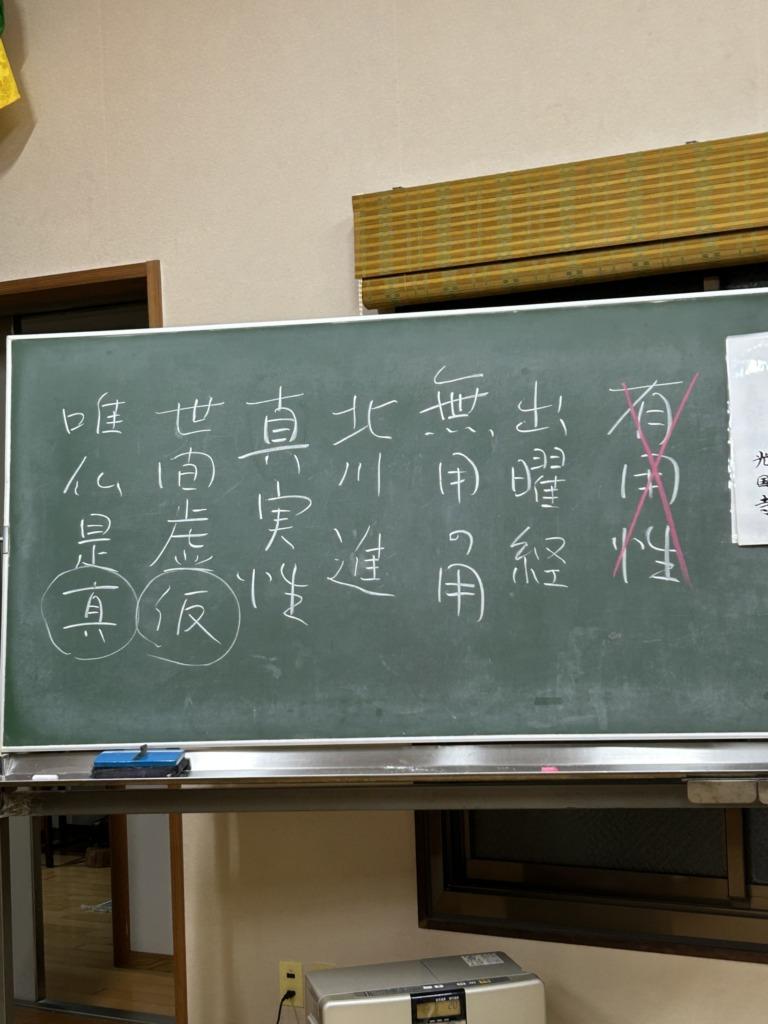 光国寺
有用性
出曜経
無用の用
北川進
真実性
世間虚仮
唯仏是真